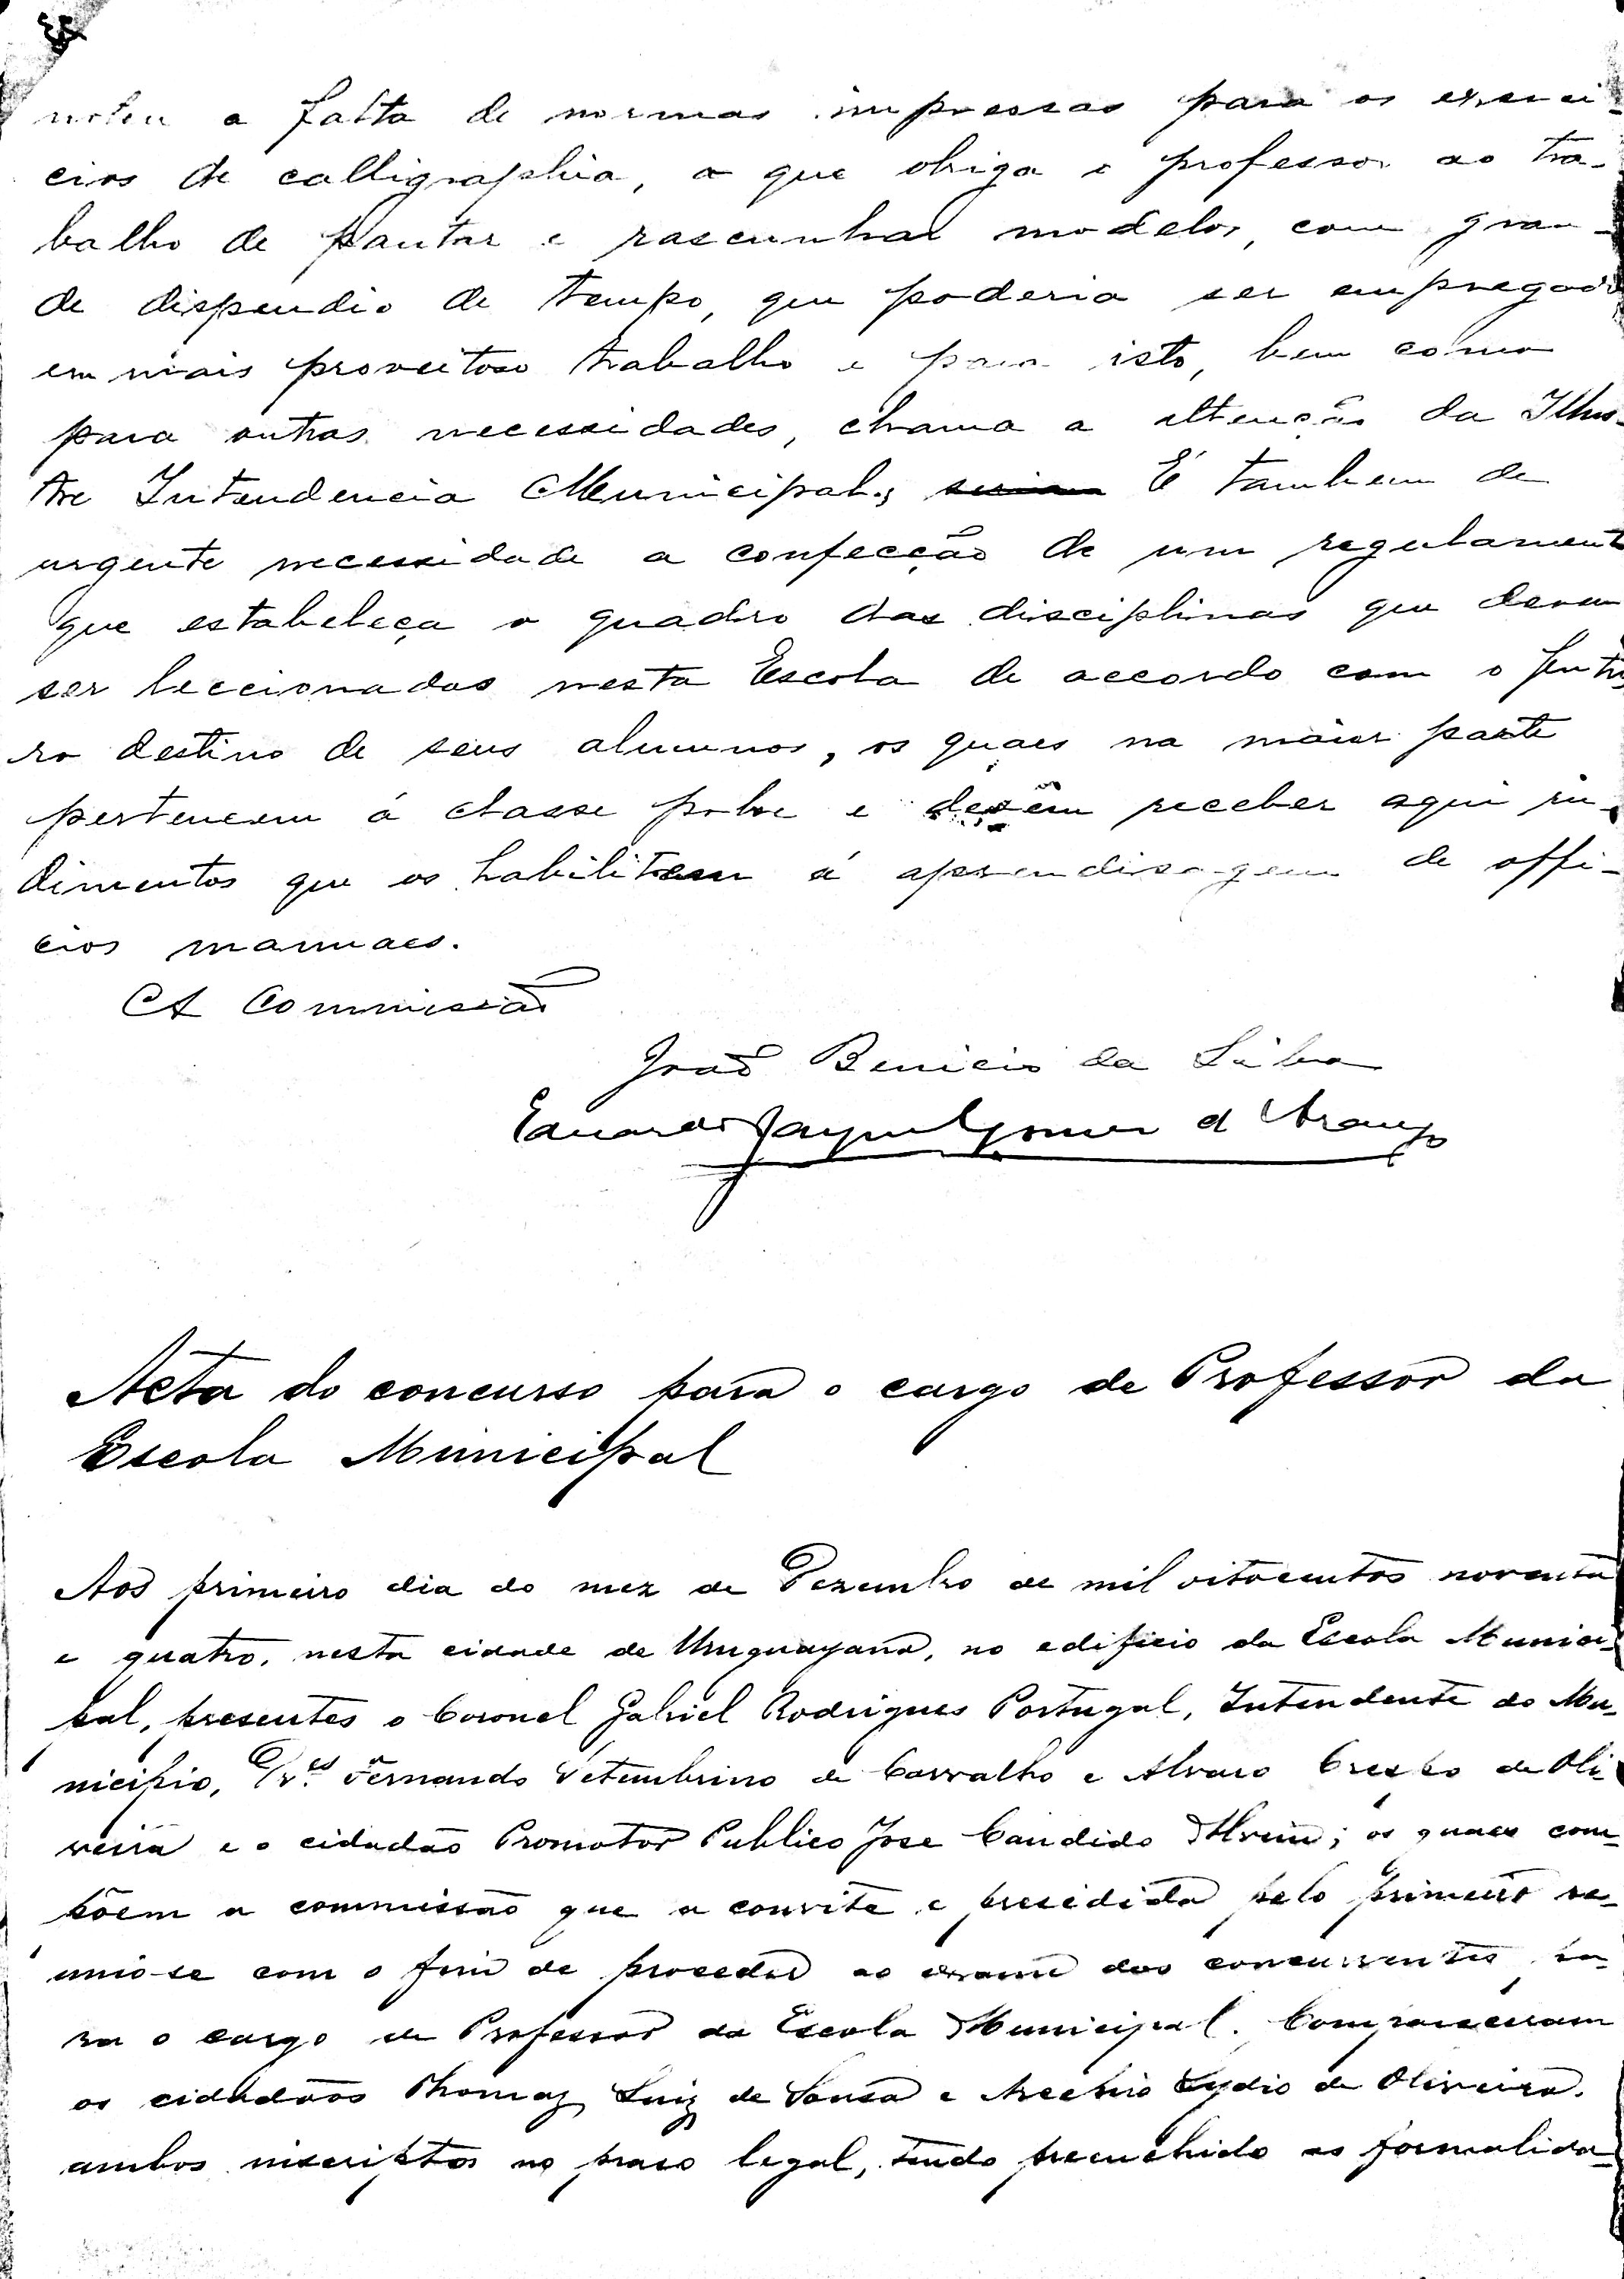 notou a falta de normas impressas para os exerci-
cios de calligraphia, o que obriga o professor ao tra-
balho de pautar e rascunhar modelos, com gran-
de dispendio de tempo, que poderia ser empregado
em mais proveitoso trabalho e para isto, bem como
para outras necessidades, chama a attenção da Illus-
tre Intendencia Municipal. É tambem de
urgente necessidade a confecção de um regulamento
que estabeleça o quadro das disciplinas que devem
ser leccionadas nesta Escola de accordo com o futu-
ro destino de seus alumnos, os quaes na maior parte
pertencem á classe pobre e devem receber aqui ru-
dimentos que os habilitem á aprendisagem de offi-
cios manuaes.
A Commissão
João Benicio da Silva
Eduardo Gomes d'Araujo
Acta do concurso para o cargo de Professor da
Escola Municipal
Aos primeiro dia do mez de Dezembro de mil oitocentos noventa
e quatro, nesta cidade de Uruguayana, no edificio da Escola Munici-
pal, presentes o Coronel Gabriel Rodrigues Portugal, Intendente do Mu-
nicipio, Drs. Fernando Setembrino de Carvalho e Alvaro Crespo de Oli-
veira e o cidadão Promotor Publico Jose Candido; os quaes com-
põem a commissão que a convite e presidida pelo primeiro re-
unio-se com o fim de proceder ao exame dos concurrentes pa-
ra o cargo de Professor da Escola Municipal. Compareceram
os cidadãos Thomaz Luiz de Sousa e Lydio de Oliveira.
ambos inscriptos no praso legal, tendo preenchido as formalida-